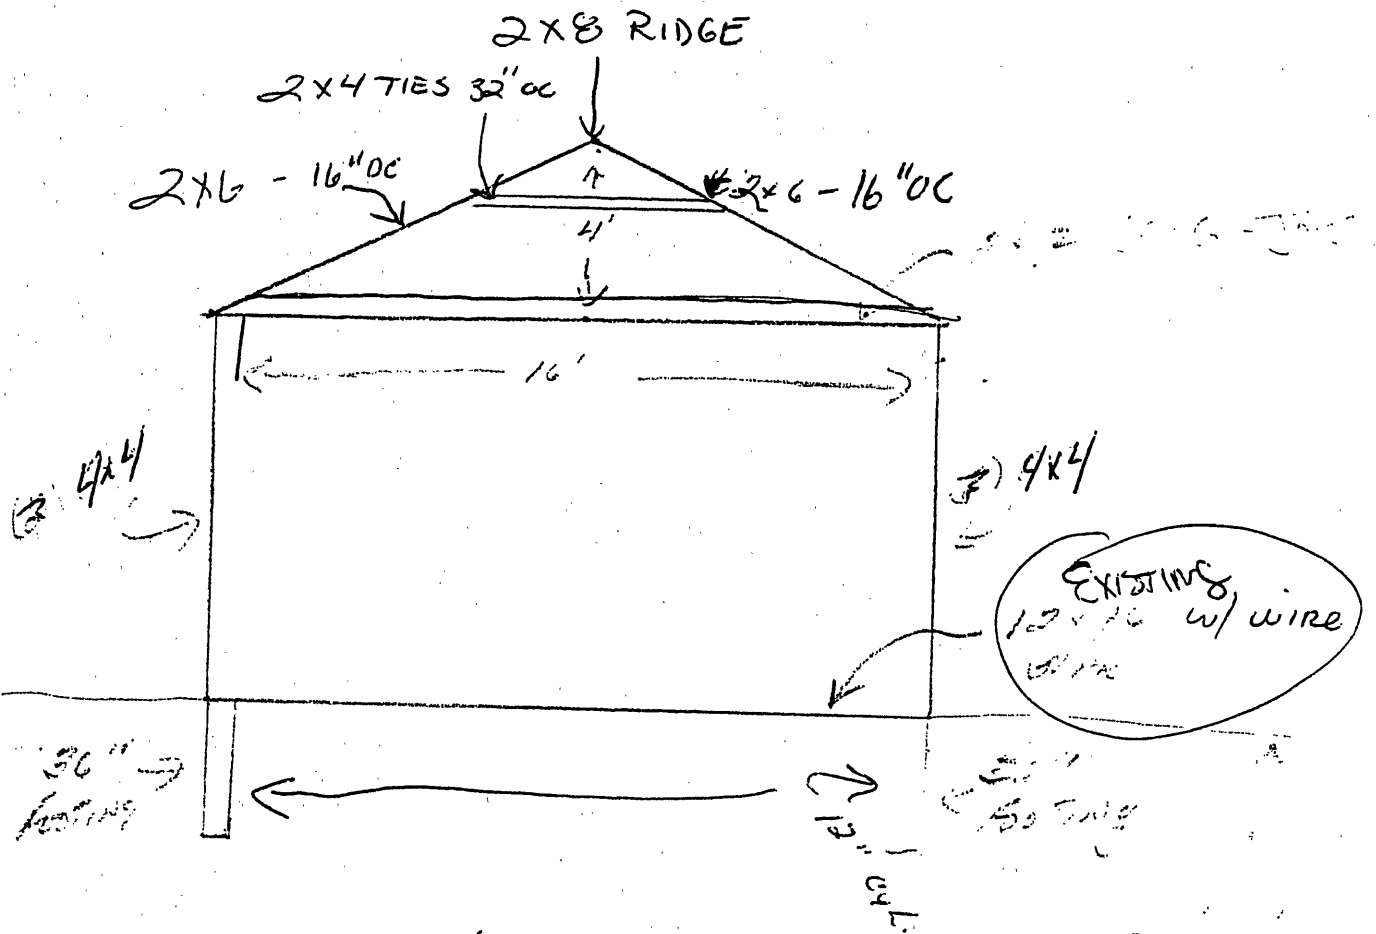 2x8 RIDGE
2x4 TIES 32" OC
2x6 - 16" OC
2x6 - 16" OC
4'
16'
4x4
4x4
EXISTING
12 x 16 w/ wire
36"
footing
footing
12"